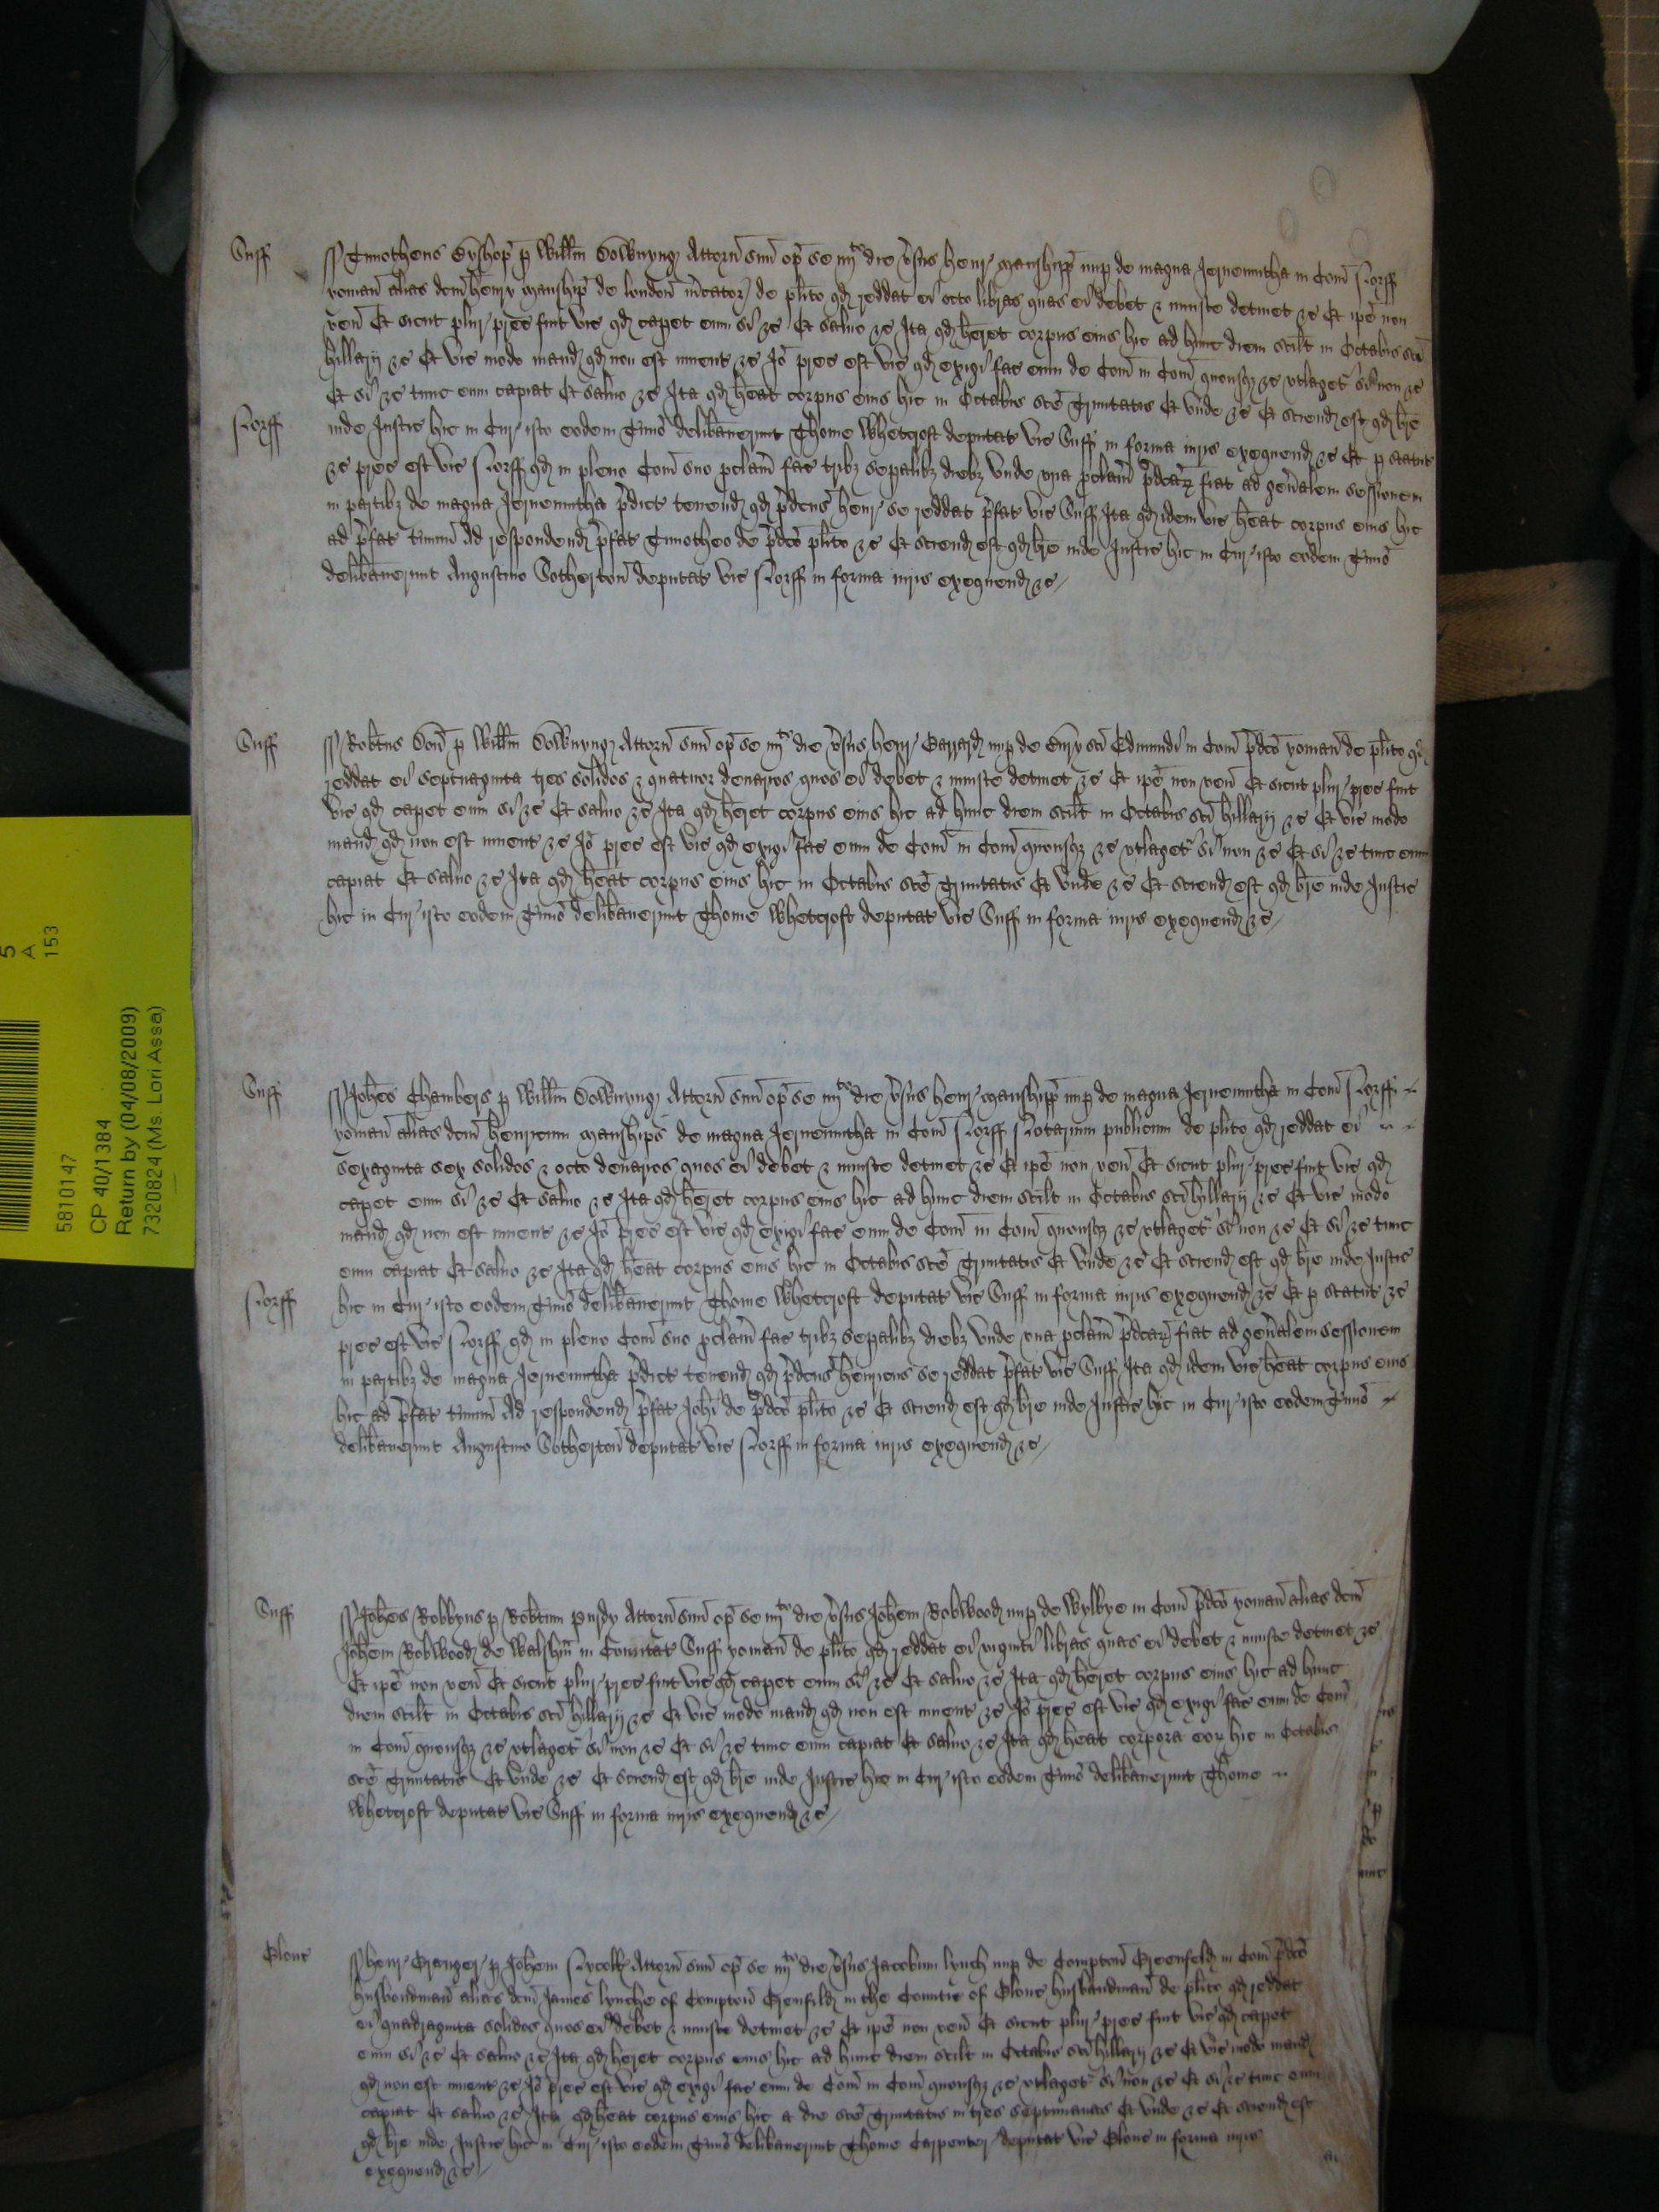 Suff
Timotheus Byshop p Willm Downyng Attorn suu op se iiijto die vsus Henr Manshipp nup de magna Jernemutha in Com Norff
yoman alias dcm Henry Manship de london mcator de plito qd reddat ei octo libras quas ei debet & iniuste detinet &c Et ipe non
ven Et sicut plur prec fuit vic qd capet eum si &c Et salvo &c Ita qd heret corpus eius hic ad hunc diem scilt in Octabis sci
Hillarij &c Et vic modo mand qd non est invent &c Io prec est vic qd exigi fac eum de Com in Com quousqz &c utlaget si non &c
Et si &c tunc eum capiat Et salvo &c Ita qd heat corpus eius hic in Octabis sce Trinitatis Et unde &c Et sciend est qd bre
Norff
inde Justic hic in Cur isto eodem Tmio delibaverunt Thome Whetcroft deputat vic Suff in forma iuris exequend &c Et p statut
&c prec est vic Norff qd in pleno Com suo pclam fac tribz sepalibz diebz unde una pclam pdcar fiat ad genalem sessionem
in partibz de magna Jernemutha pdict tenend qd pdcus Henr se reddat pfat vic Suff Ita qd idem vic heat corpus eius hic
ad pfat tminu Ad respondend pfat Timotheo de pdco plito &c Et sciend est qd bre inde Justic hic in Cur isto eodem Tmio
delibaverunt Augustino Sotherton deputat vic Norff in forma iuris exequend &c
Suff
Robtus p Willm Downyng Attorn suu op se iiijto die vsus Henr nup de Bury sci Edmundi in Com pdco yoman de plito qd
reddat ei septuaginta tres solidos & quatuor denarios quos ei debet & iniuste detinet &c Et ipe non ven Et sicut plur prec fuit
vic qd capet eum si &c Et salvo &c Ita qd heret corpus eius hic ad hunc diem scilt in Octabis sci Hillarij &c Et vic modo
mand qd non est invent &c Io prec est vic qd exigi fac eum de Com in Com quousqz &c utlaget si non &c Et si &c tunc eum
capiat Et salvo &c Ita qd heat corpus eius hic in Octabis sce Trinitatis Et unde &c Et sciend est qd bre inde Justic
hic in Cur isto eodem Tmio delibaverunt Thome Whetcroft deputat vic Suff in forma iuris exequend &c
Suff
Johes Chambers p Willm Downyng Attorn suu op se iiijto die vsus Henr Manshipp nup de magna Jernemutha in Com Norff
yoman alias dcm Henricum Manships de magna Jernemutha in Com Norff Notarium publicum de plito qd reddat ei
sexaginta sex solidos & octo denarios quos ei debet & iniuste detinet &c Et ipe non ven Et sicut plur prec fuit vic qd
capet eum si &c Et salvo &c Ita qd heret corpus eius hic ad hunc diem scilt in Octabis sci hyllarij &c Et vic modo
mand qd non est invent &c Io prec est vic qd exigi fac eum de Com in Com quousqz &c utlaget si non &c Et si &c tunc
eum capiat Et salvo &c Ita qd heat corpus eius hic in Octabis sce Trinitatis Et unde &c Et sciend est qd bre inde Justic
Norff
hic in Cur isto eodem Tmio delibaverunt Thome Whetcroft deputat vic Suff in forma iuris exequend &c Et p statut &c
prec est vic Norff qd in pleno Com suo pclam fac tribz sepalibz diebz unde una pclam pdcar fiat ad genalem sessionem
in partibz de magna Jernemutha pdict tenend qd pdcus Henricus se reddat pfat vic Suff Ita qd idem vic heat corpus eius
hic ad pfat tminu Ad respondend pfat Johi de pdco plito &c Et sciend est qd bre inde Justic hic in Cur isto eodem Tmio
delibaverunt Augustino Sotherton deputat vic Norff in forma iuris exequend &c
Suff
Johes Robbyns p Robtum Purdy Attorn suu op se iiijto die vsus Johem Roblwood nup de Wylbye in Com pdco yoman alias dcm
Johem Roblwood de Walshm in Comitat Suff yoman de plito qd reddat ei viginti libras quas ei debet & iniuste detinet &c
Et ipe non ven Et sicut plur prec fuit vic qd capet eum si &c Et salvo &c Ita qd heret corpus eius hic ad hunc
diem scilt in Octabis sci Hillarij &c Et vic modo mand qd non est invent &c Io prec est vic qd exigi fac eum de Com
in Com quousqz &c utlaget si non &c Et si &c tunc eum capiat Et salvo &c Ita qd heat corpora eor hic in Octabis
sce Trinitatis Et unde &c Et sciend est qd bre inde Justic hic in Cur isto eodem Tmio delibaverunt Thome
Whetcroft deputat vic Suff in forma iuris exequend &c
Glouc
Henr Granger p Johem Attorn suu op se iiijto die vsus Jacobum Lynch nup de Compton Greenfeld in Com pdco
husbondman alias dcm James Lynche of Compton Grenfild in the Countie of Glouc husbandman de plito qd reddat
ei quadraginta solidos quos ei debet & iniuste detinet &c Et ipe non ven Et sicut plur prec fuit vic qd capet
eum si &c Et salvo &c Ita qd heret corpus eius hic ad hunc diem scilt in Octabis sci Hillarij &c Et vic modo mand
qd non est invent &c Io prec est vic qd exigi fac eum de Com in Com quousqz &c utlaget si non &c Et si &c tunc eum
capiat Et salvo &c Ita qd heat corpus eius hic a die sce Trinitatis in tres septimanas Et unde &c Et sciend est
qd bre inde Justic hic in Cur isto eodem Tmio delibaverunt Thome Carpenter deputat vic Glouc in forma iuris
exequend &c
5
A
153
5810147
CP 40/1384
Return by (04/08/2009)
7320824 (Ms. Lori Assa)